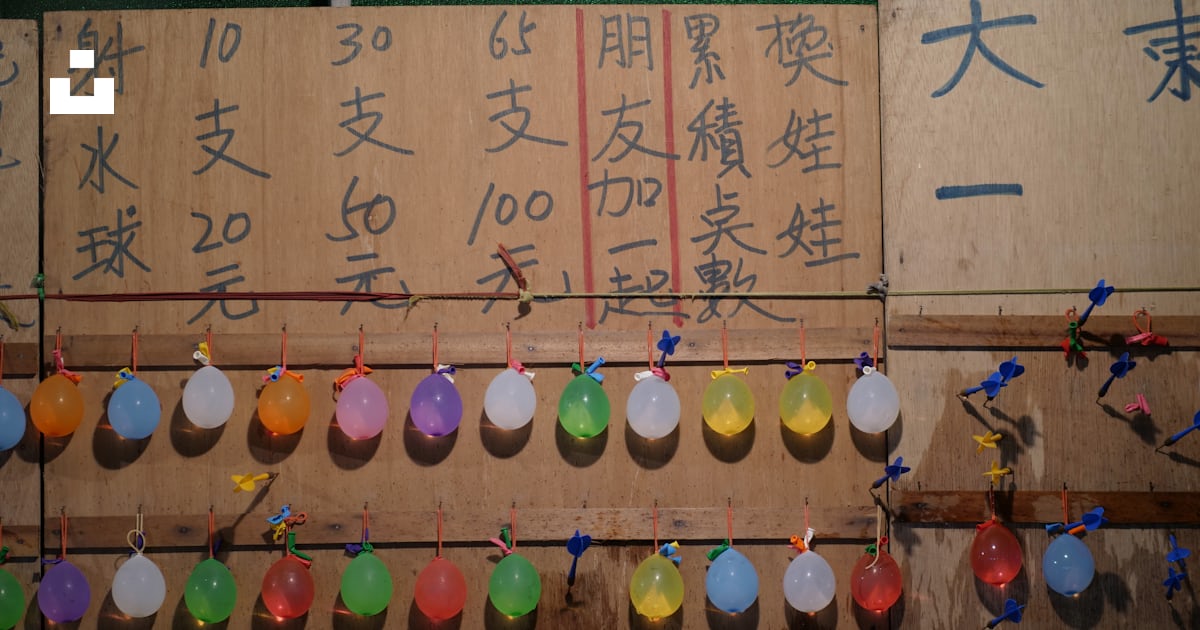 射水球
10支20元
30支50元
65支100元
朋友加一起
累積奌數
換娃娃
大一